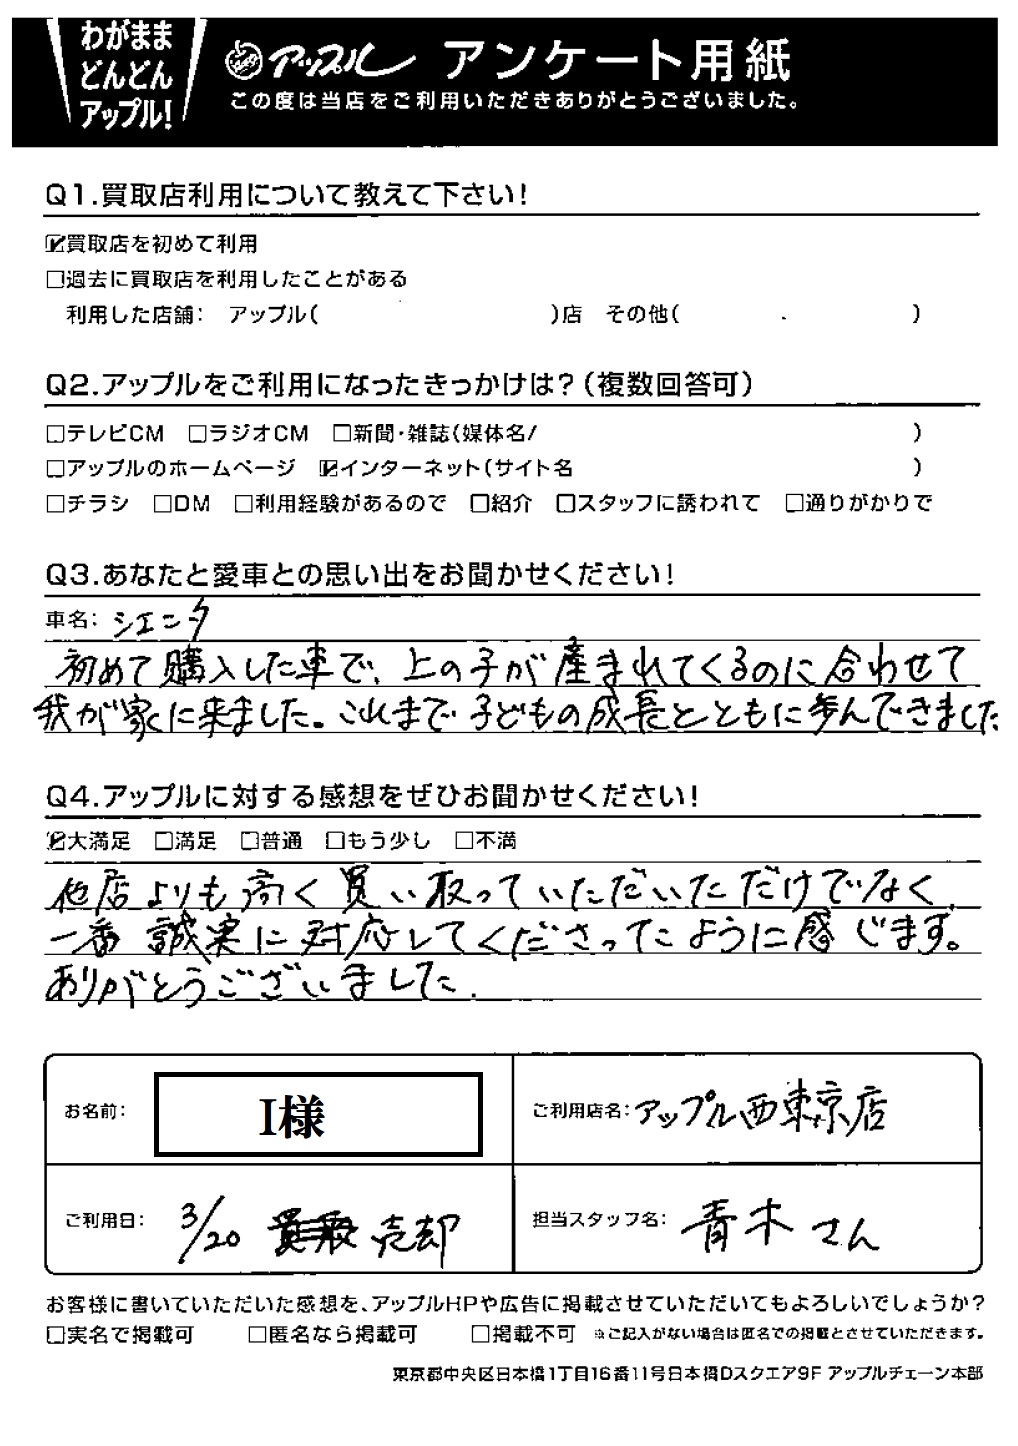 わがまま
どんどん
アップル!
アップル アンケート用紙
この度は当店をご利用いただきありがとうございました。
Q1.買取店利用について教えて下さい!
☑買取店を初めて利用
□過去に買取店を利用したことがある
利用した店舗: アップル( )店 その他( )
Q2.アップルをご利用になったきっかけは?(複数回答可)
□テレビCM □ラジオCM □新聞・雑誌(媒体名/ )
□アップルのホームページ ☑インターネット(サイト名 )
□チラシ □DM □利用経験があるので □紹介 □スタッフに誘われて □通りがかりで
Q3.あなたと愛車との思い出をお聞かせください!
車名: シエンタ
初めて購入した車で、上の子が産まれてくるのに合わせて
我が家に来ました。これまで子どもの成長とともに歩んできました
Q4.アップルに対する感想をぜひお聞かせください!
☑大満足 □満足 □普通 □もう少し □不満
他店よりも高く買い取っていただいただけでなく、
一番誠実に対応してくださったように感じます。
ありがとうございました.
お名前: I様
ご利用店名: アップル西東京店
ご利用日: 3/20 売却
担当スタッフ名: 青木さん
お客様に書いていただいた感想を、アップルHPや広告に掲載させていただいてもよろしいでしょうか?
□実名で掲載可 □匿名なら掲載可 □掲載不可 ※ご記入がない場合は匿名での掲載とさせていただきます。
東京都中央区日本橋1丁目16番11号日本橋Dスクエア9F アップルチェーン本部